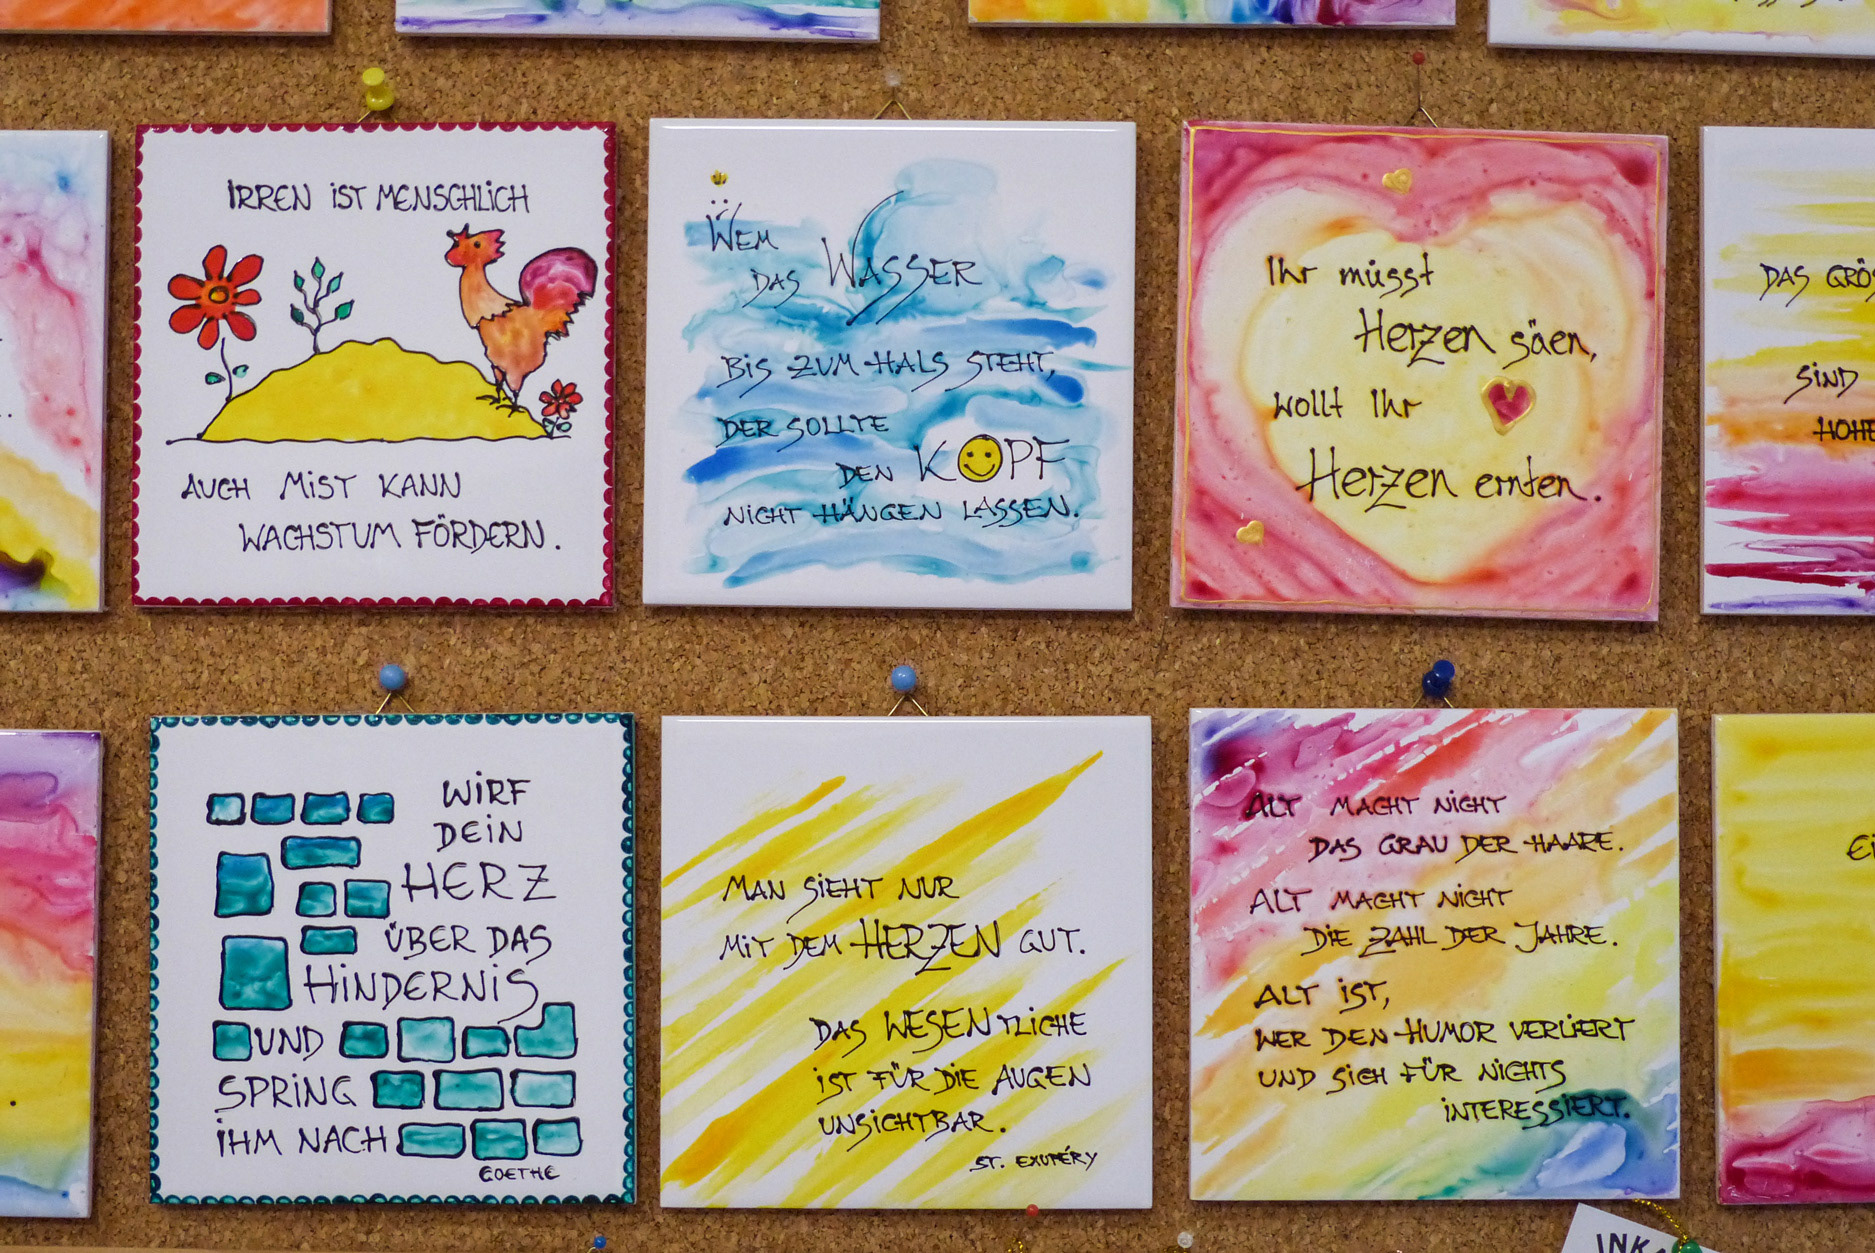 IRREN IST MENSCHLICH
AUCH MIST KANN
WACHSTUM FÖRDERN.
WEM
DAS WASSER
BIS ZUM HALS STEHT,
DER SOLLTE
DEN KOPF
NICHT HÄNGEN LASSEN.
Ihr müsst
Herzen säen,
wollt Ihr
Herzen ernten.
DAS
SIND
WIRF
DEIN
HERZ
ÜBER DAS
HINDERNIS
UND
SPRING
IHM NACH
GOETHE
MAN SIEHT NUR
MIT DEM HERZEN GUT.
DAS WESENTLICHE
IST FÜR DIE AUGEN
UNSICHTBAR.
ST. EXUPÉRY
ALT MACHT NICHT
DAS GRAU DER HAARE.
ALT MACHT NICHT
DIE ZAHL DER JAHRE.
ALT IST,
WER DEN HUMOR VERLIERT
UND SICH FÜR NICHTS
INTERESSIERT.